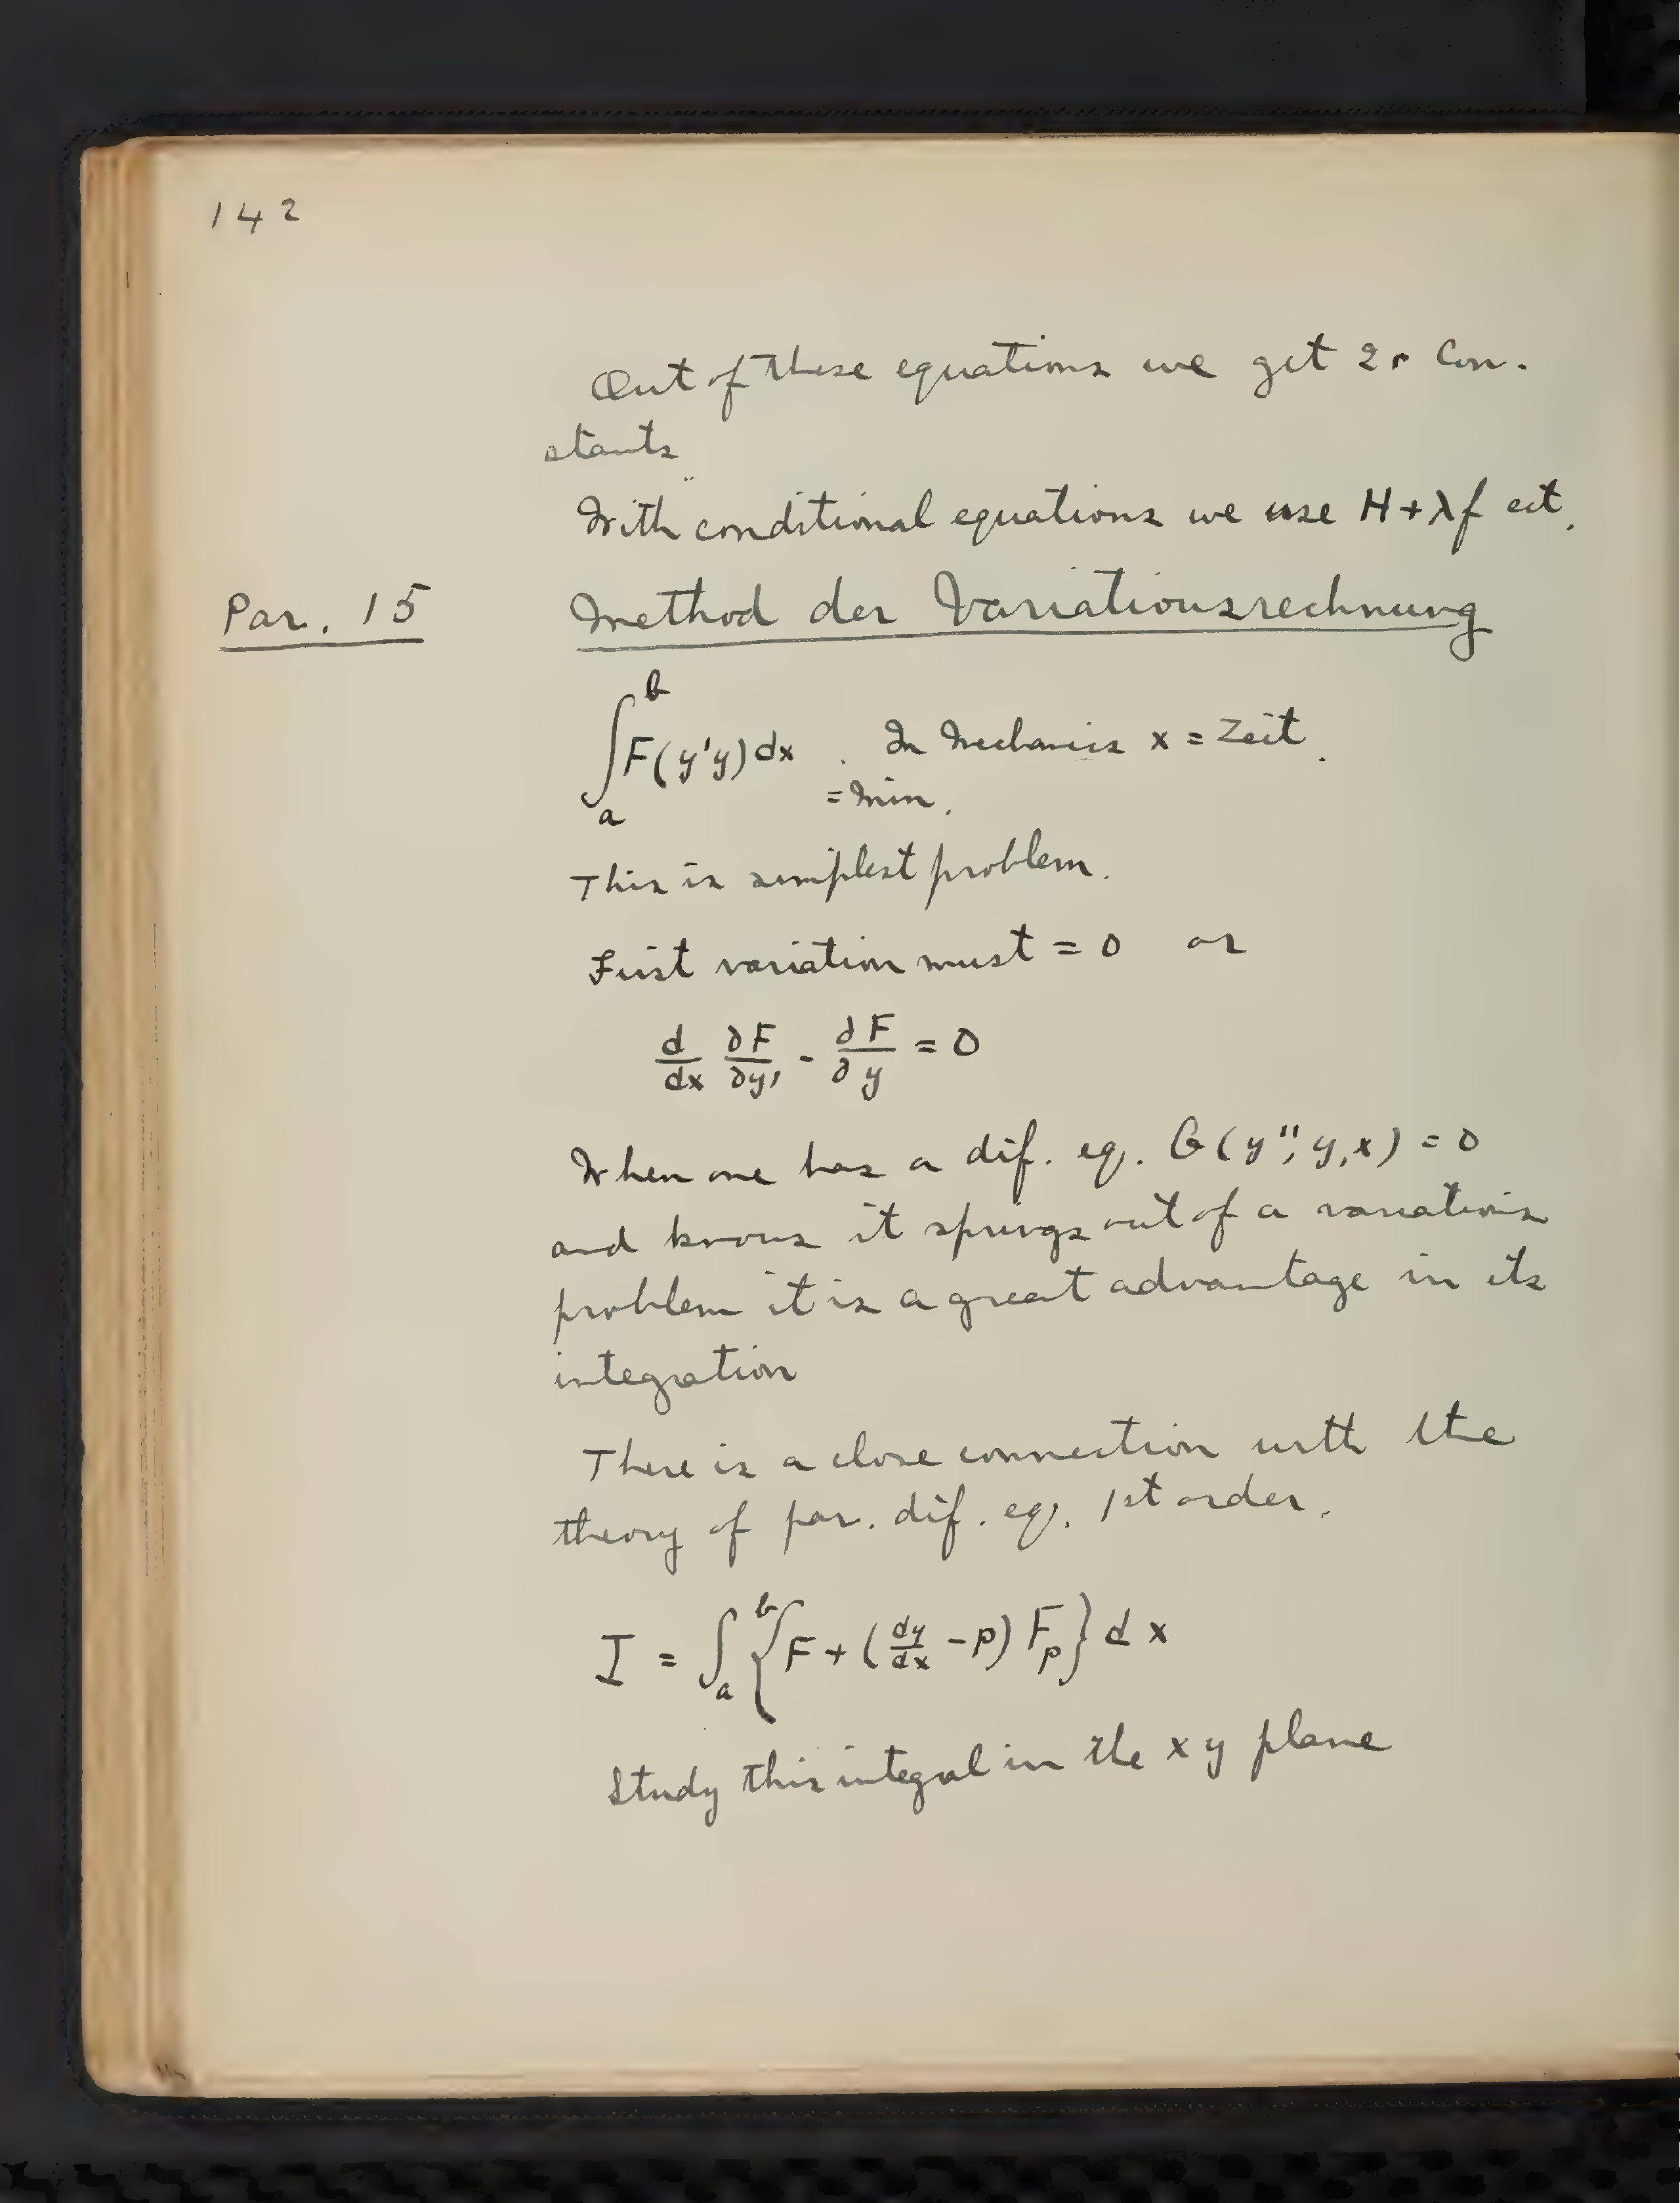 142
Out of these equations we get 2r Con-
stants
With conditional equations we use H+λf ect.
Par. 15 Method der Variationsrechnung
∫_a^b F(y'y)dx . In Mechanics x = Zeit.
= Min.
This is simplest problem.
First variation must = 0 or
d/dx ∂F/∂y' - ∂F/∂y = 0
When one has a dif. eq. G(y'', y, x) = 0
and knows it springs out of a variations
problem it is a great advantage in its
integration
There is a close connection with the
theory of par. dif. eq. 1st order.
I = ∫_a^b {F + (dy/dx - p) F_p} dx
Study this integral in the xy plane